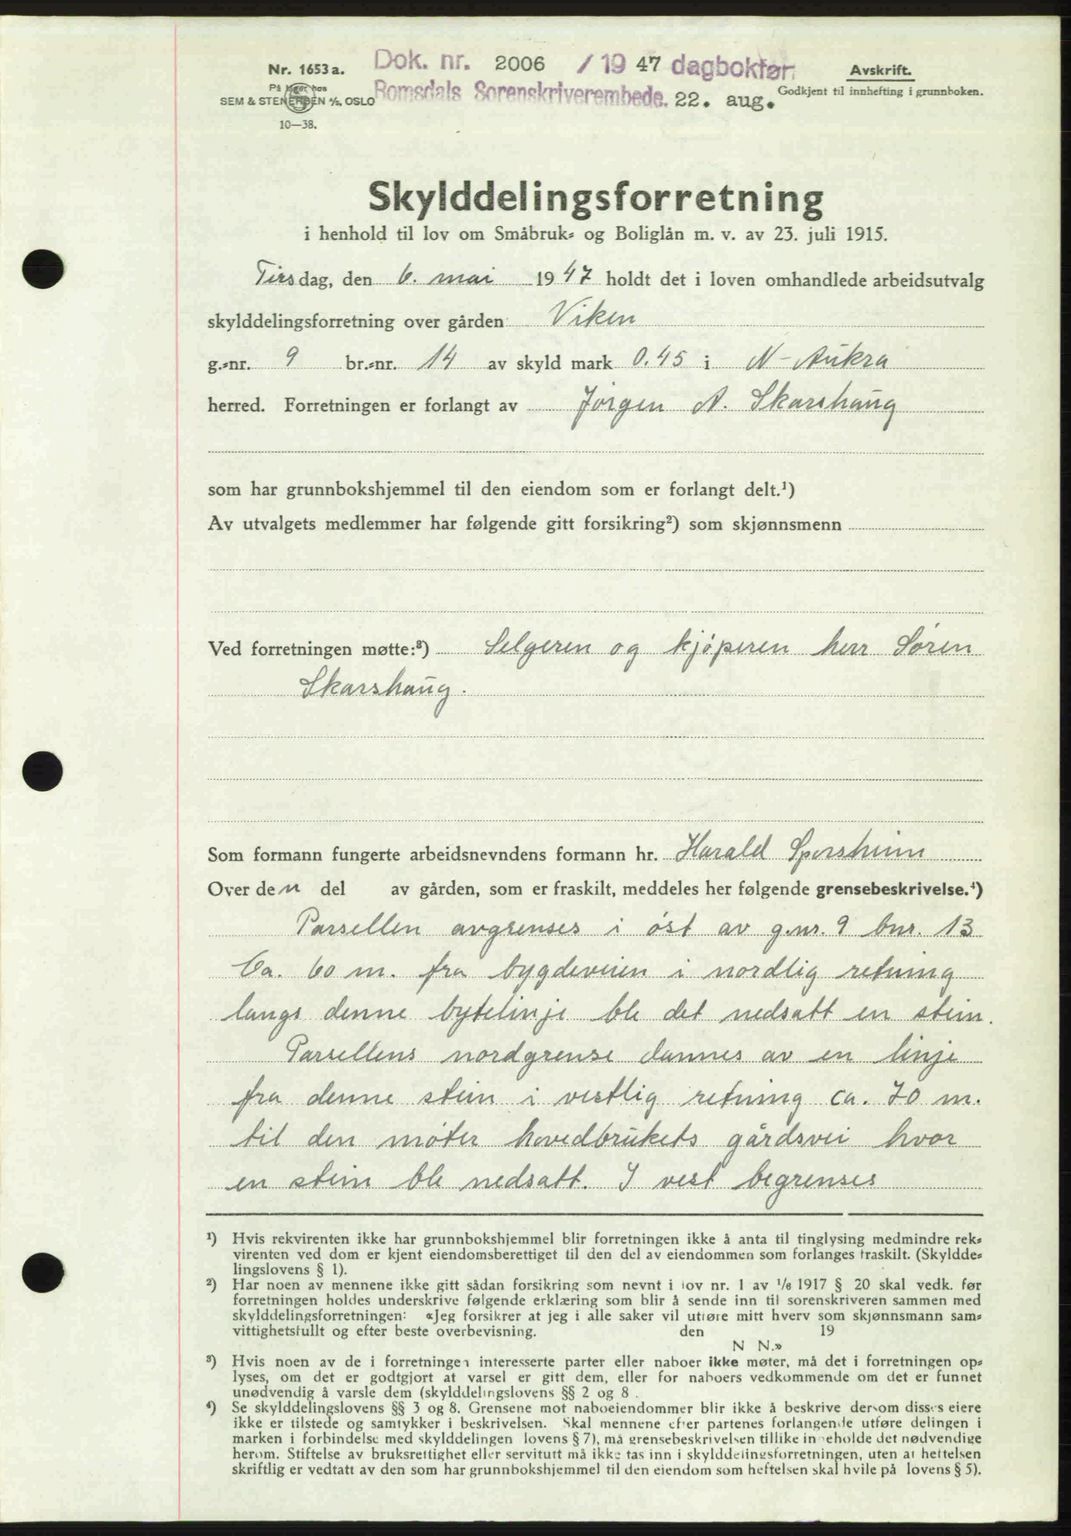 Nr. 1653 a.
På lager hos
SEM & STENERSEN A/S, OSLO
10—38.
Dok. nr. 2006 / 19 47 dagbokført
Romsdals Sorenskriverembede. 22. aug.
Avskrift.
Godkjent til innhefting i grunnboken.
Skylddelingsforretning
i henhold til lov om Småbruk- og Boliglån m. v. av 23. juli 1915.
Tirsdag, den 6. mai 1947 holdt det i loven omhandlede arbeidsutvalg
skylddelingsforretning over gården Viken
g.-nr. 9 br.-nr. 14 av skyld mark 0.45 i N-Aukra
herred. Forretningen er forlangt av Jørgen A. Skarshaug
som har grunnbokshjemmel til den eiendom som er forlangt delt.¹)
Av utvalgets medlemmer har følgende gitt forsikring²) som skjønnsmenn
Ved forretningen møtte:³) Selgeren og kjøperen herr Søren
Skarshaug.
Som formann fungerte arbeidsnevndens formann hr. Harald Sporsheim
Over den del av gården, som er fraskilt, meddeles her følgende grensebeskrivelse.⁴)
Parsellen avgrenses i øst av g.nr. 9 bnr. 13
Ca. 60 m. fra bygdeveien i nordlig retning
langs denne bytelinje ble det nedsatt en stein.
Parsellens nordgrense dannes av en linje
fra denne stein i vestlig retning ca. 70 m.
til den møter hovedbrukets gårdsvei hvor
en stein ble nedsatt. I vest begrenses
¹) Hvis rekvirenten ikke har grunnbokshjemmel blir forretningen ikke å anta til tinglysing medmindre rek-
virenten ved dom er kjent eiendomsberettiget til den del av eiendommen som forlanges fraskilt. (Skyldde-
lingslovens § 1).
²) Har noen av mennene ikke gitt sådan forsikring som nevnt i lov nr. 1 av 1/6 1917 § 20 skal vedk. før
forretningen holdes underskrive følgende erklæring som blir å sende inn til sorenskriveren sammen med
skylddelingsforretningen: «Jeg forsikrer at jeg i alle saker vil utføre mitt hverv som skjønnsmann sam-
vittighetsfullt og efter beste overbevisning. den 19
N N.»
³) Hvis noen av de i forretningen interesserte parter eller naboer ikke møter, må det i forretningen op-
lyses, om det er godtgjort at varsel er gitt dem, eller for naboers vedkommende om det er funnet
unødvendig å varsle dem (skylddelingslovens §§ 2 og 8.
⁴) Se skylddelingslovens §§ 3 og 8. Grensene mot naboeiendommer blir ikke å beskrive dersom disses eiere
ikke er tilstede og samtykker i beskrivelsen. Skal mennene efter partenes forlangende utføre delingen i
marken i forbindelse med skylddelingen lovens § 7), må grensebeskrivelsen tillike inneholde det nødvendige
herom. Stiftelse av bruksrettighet eller servitutt må ikke tas inn i skylddelingsforretningen, uten at heftelsen
skriftlig er vedtatt av den som har grunnbokshjemmel til den eiendom som heftelsen skal hvile på lovens § 5).